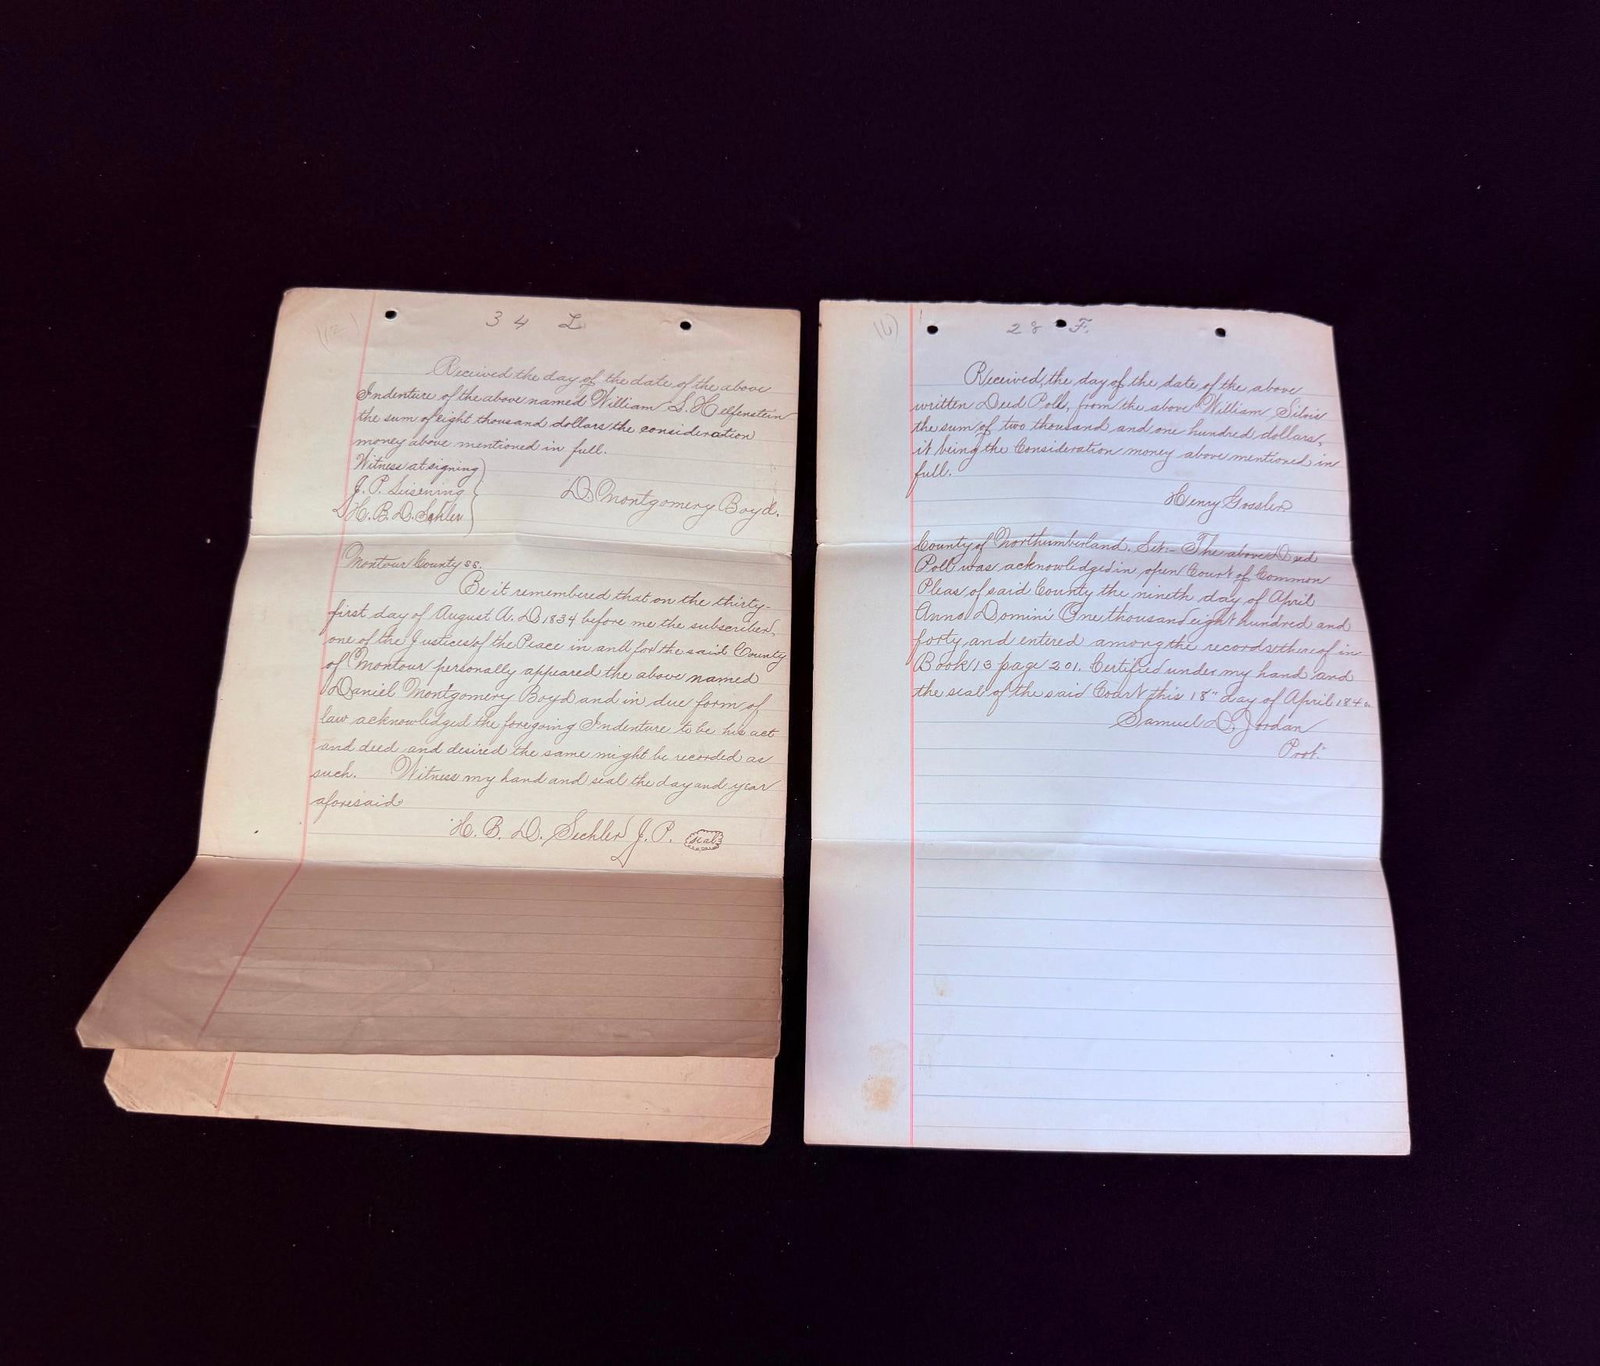 34 L
Received the day of the date of the above
Indenture of the above named William L. Helfenstein
the sum of eight thousand dollars the consideration
money above mentioned in full.
Witness at signing
J. P. Leisenring
H. B. D. Sechler
D. Montgomery Boyd.
Montour County ss.
Be it remembered that on the thirty-
first day of August A. D. 1834 before me the subscriber,
one of the Justices of the Peace in and for the said County
of Montour personally appeared the above named
Daniel Montgomery Boyd and in due form of
law acknowledged the foregoing Indenture to be his act
and deed and desired the same might be recorded as
such. Witness my hand and seal the day and year
aforesaid
H. B. D. Sechler J. P. seal
(6)
28 F.
Received, the day of the date of the above
written Deed Poll, from the above William Silvis
the sum of two thousand and one hundred dollars,
it being the Consideration money above mentioned in
full.
Henry Gossler
County of Northumberland. Sct:- The above Deed
Poll was acknowledged in open Court of Common
Pleas of said County the nineth day of April
Anno Domini One thousand eight hundred and
forty and entered among the records thereof in
Book 13 page 201. Certified under my hand and
the seal of the said Court this 18" day of April 1840
Samuel D. Jordan
Prot.